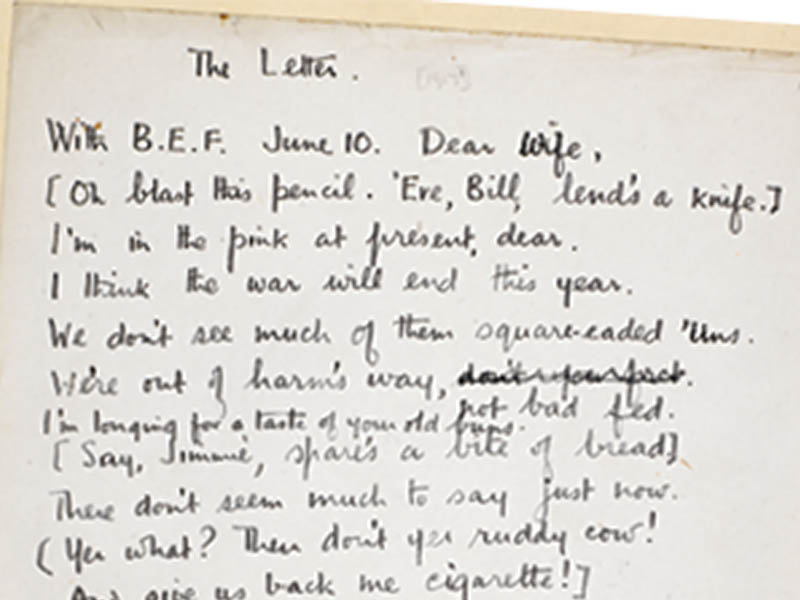 The Letter.
With B.E.F. June 10. Dear Wife,
[Oh blast this pencil. 'Ere, Bill, lend's a knife.]
I'm in the pink at present, dear.
I think the war will end this year.
We don't see much of them square-eaded 'Uns.
We're out of harm's way,
not bad fed.
I'm longing for a taste of your old buns.
[Say, Jimmie, spare's a bite of bread]
There don't seem much to say just now.
(Yer what? Then don't yer ruddy cow!
And give us back me cigarette!]